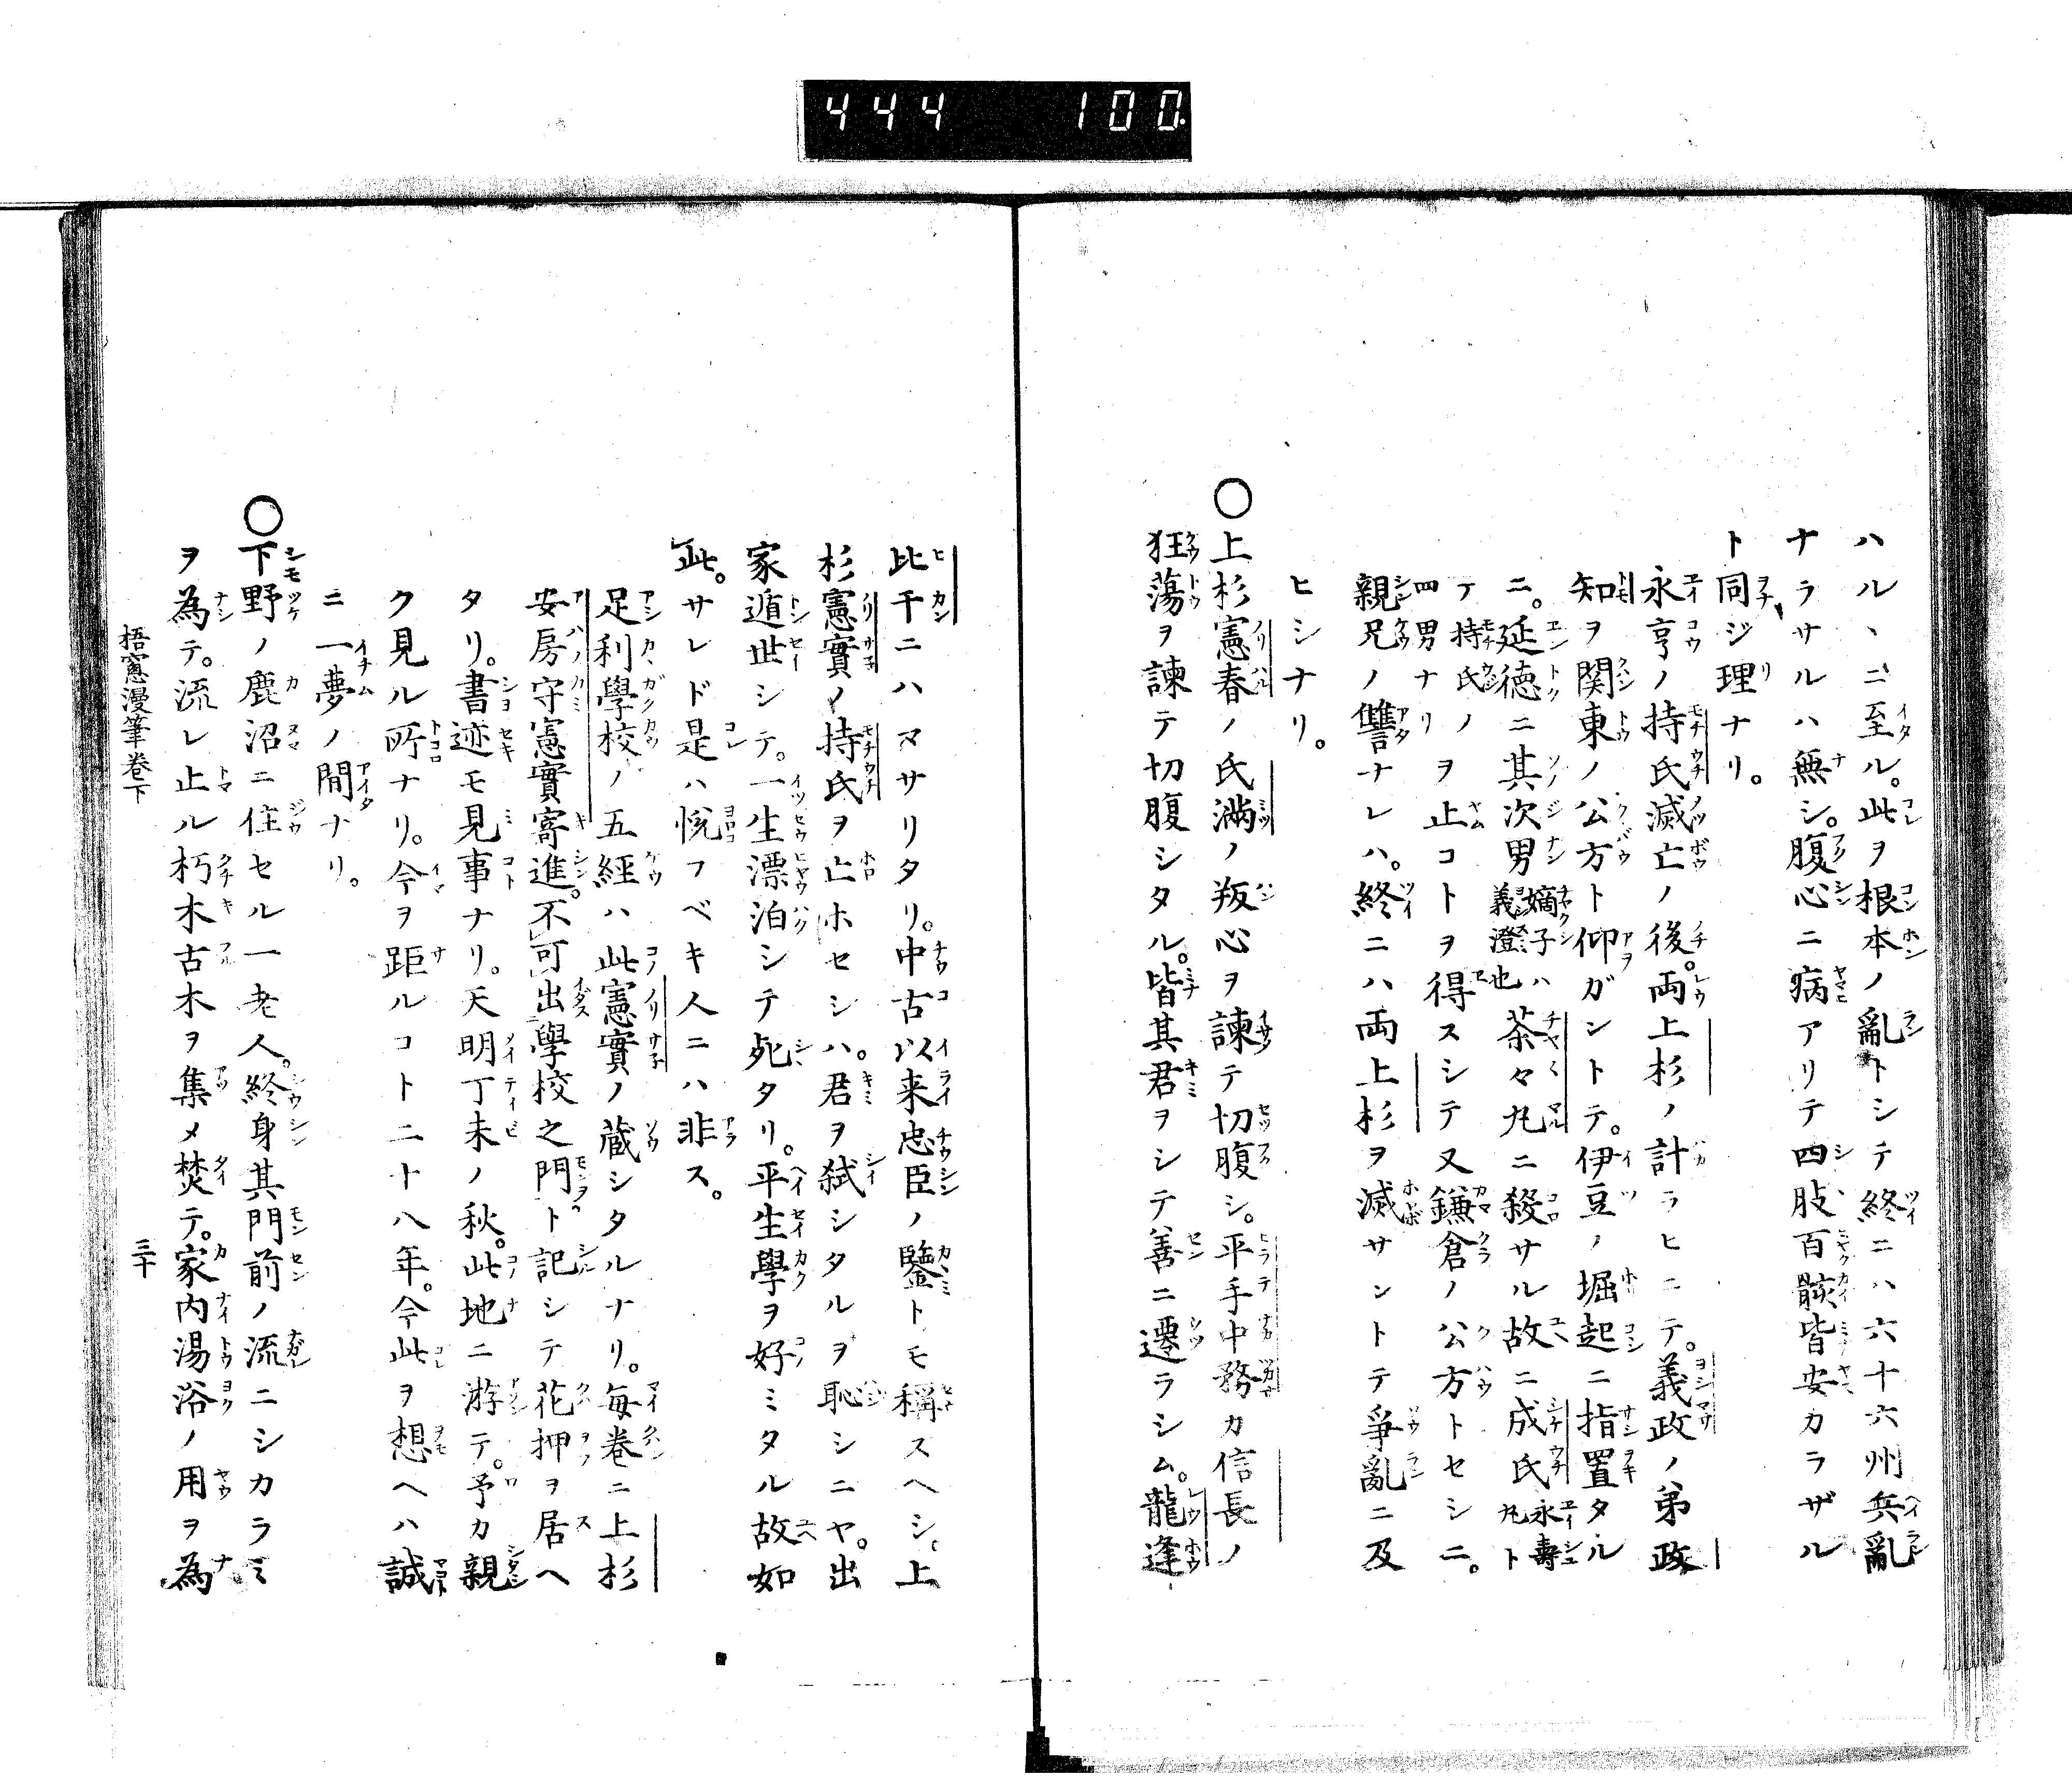 444 100.
ハルヽニ至ル。此ヲ根本ノ亂トシテ終ニハ六十六州兵亂
ナラサルハ無シ。腹心ニ病アリテ四肢百骸皆安カラザル
ト同ジ理ナリ。
永亨ノ持氏滅亡ノ後。両上杉ノ計ラヒニテ。義政ノ弟政
知ヲ関東ノ公方ト仰ガントテ。伊豆ノ堀起ニ指置タル
ニ。延徳ニ其次男嫡子ハ義澄也茶々丸ニ殺サル故ニ成氏永壽丸ト
テ持氏ノ四男ナリヲ止コトヲ得スシテ又鎌倉ノ公方トセシニ。
親兄ノ讐ナレハ。終ニハ両上杉ヲ滅サントテ爭亂ニ及
ヒシナリ。
〇上杉憲春ノ氏満ノ叛心ヲ諫テ切腹シ。平手中務カ信長ノ
狂蕩ヲ諫テ切腹シタル。皆其君ヲシテ善ニ遷ラシム。龍逢
比干ニハマサリタリ。中古以来忠臣ノ鑒トモ稱スヘシ。上
杉憲實ノ持氏ヲ亡ホセシハ。君ヲ弑シタルヲ恥シニヤ。出
家遁世シテ。一生漂泊シテ死タリ。平生學ヲ好ミタル故如
此。サレド是ハ悦フベキ人ニハ非ス。
足利學校ノ五經ハ此憲實ノ蔵シタルナリ。毎巻ニ上杉
安房守憲實寄進。不可出學校之門ト記シテ花押ヲ居ヘ
タリ。書迹モ見事ナリ。天明丁未ノ秋。此地ニ游テ。予カ親
ク見ル所ナリ。今ヲ距ルコト二十八年。今此ヲ想ヘハ誠
ニ一夢ノ間ナリ。
〇下野ノ鹿沼ニ住セル一老人。終身其門前ノ流ニシカラミ
ヲ為テ。流レ止ル朽木古木ヲ集メ焚テ。家内湯浴ノ用ヲ為
梧窻漫筆巻下 三十